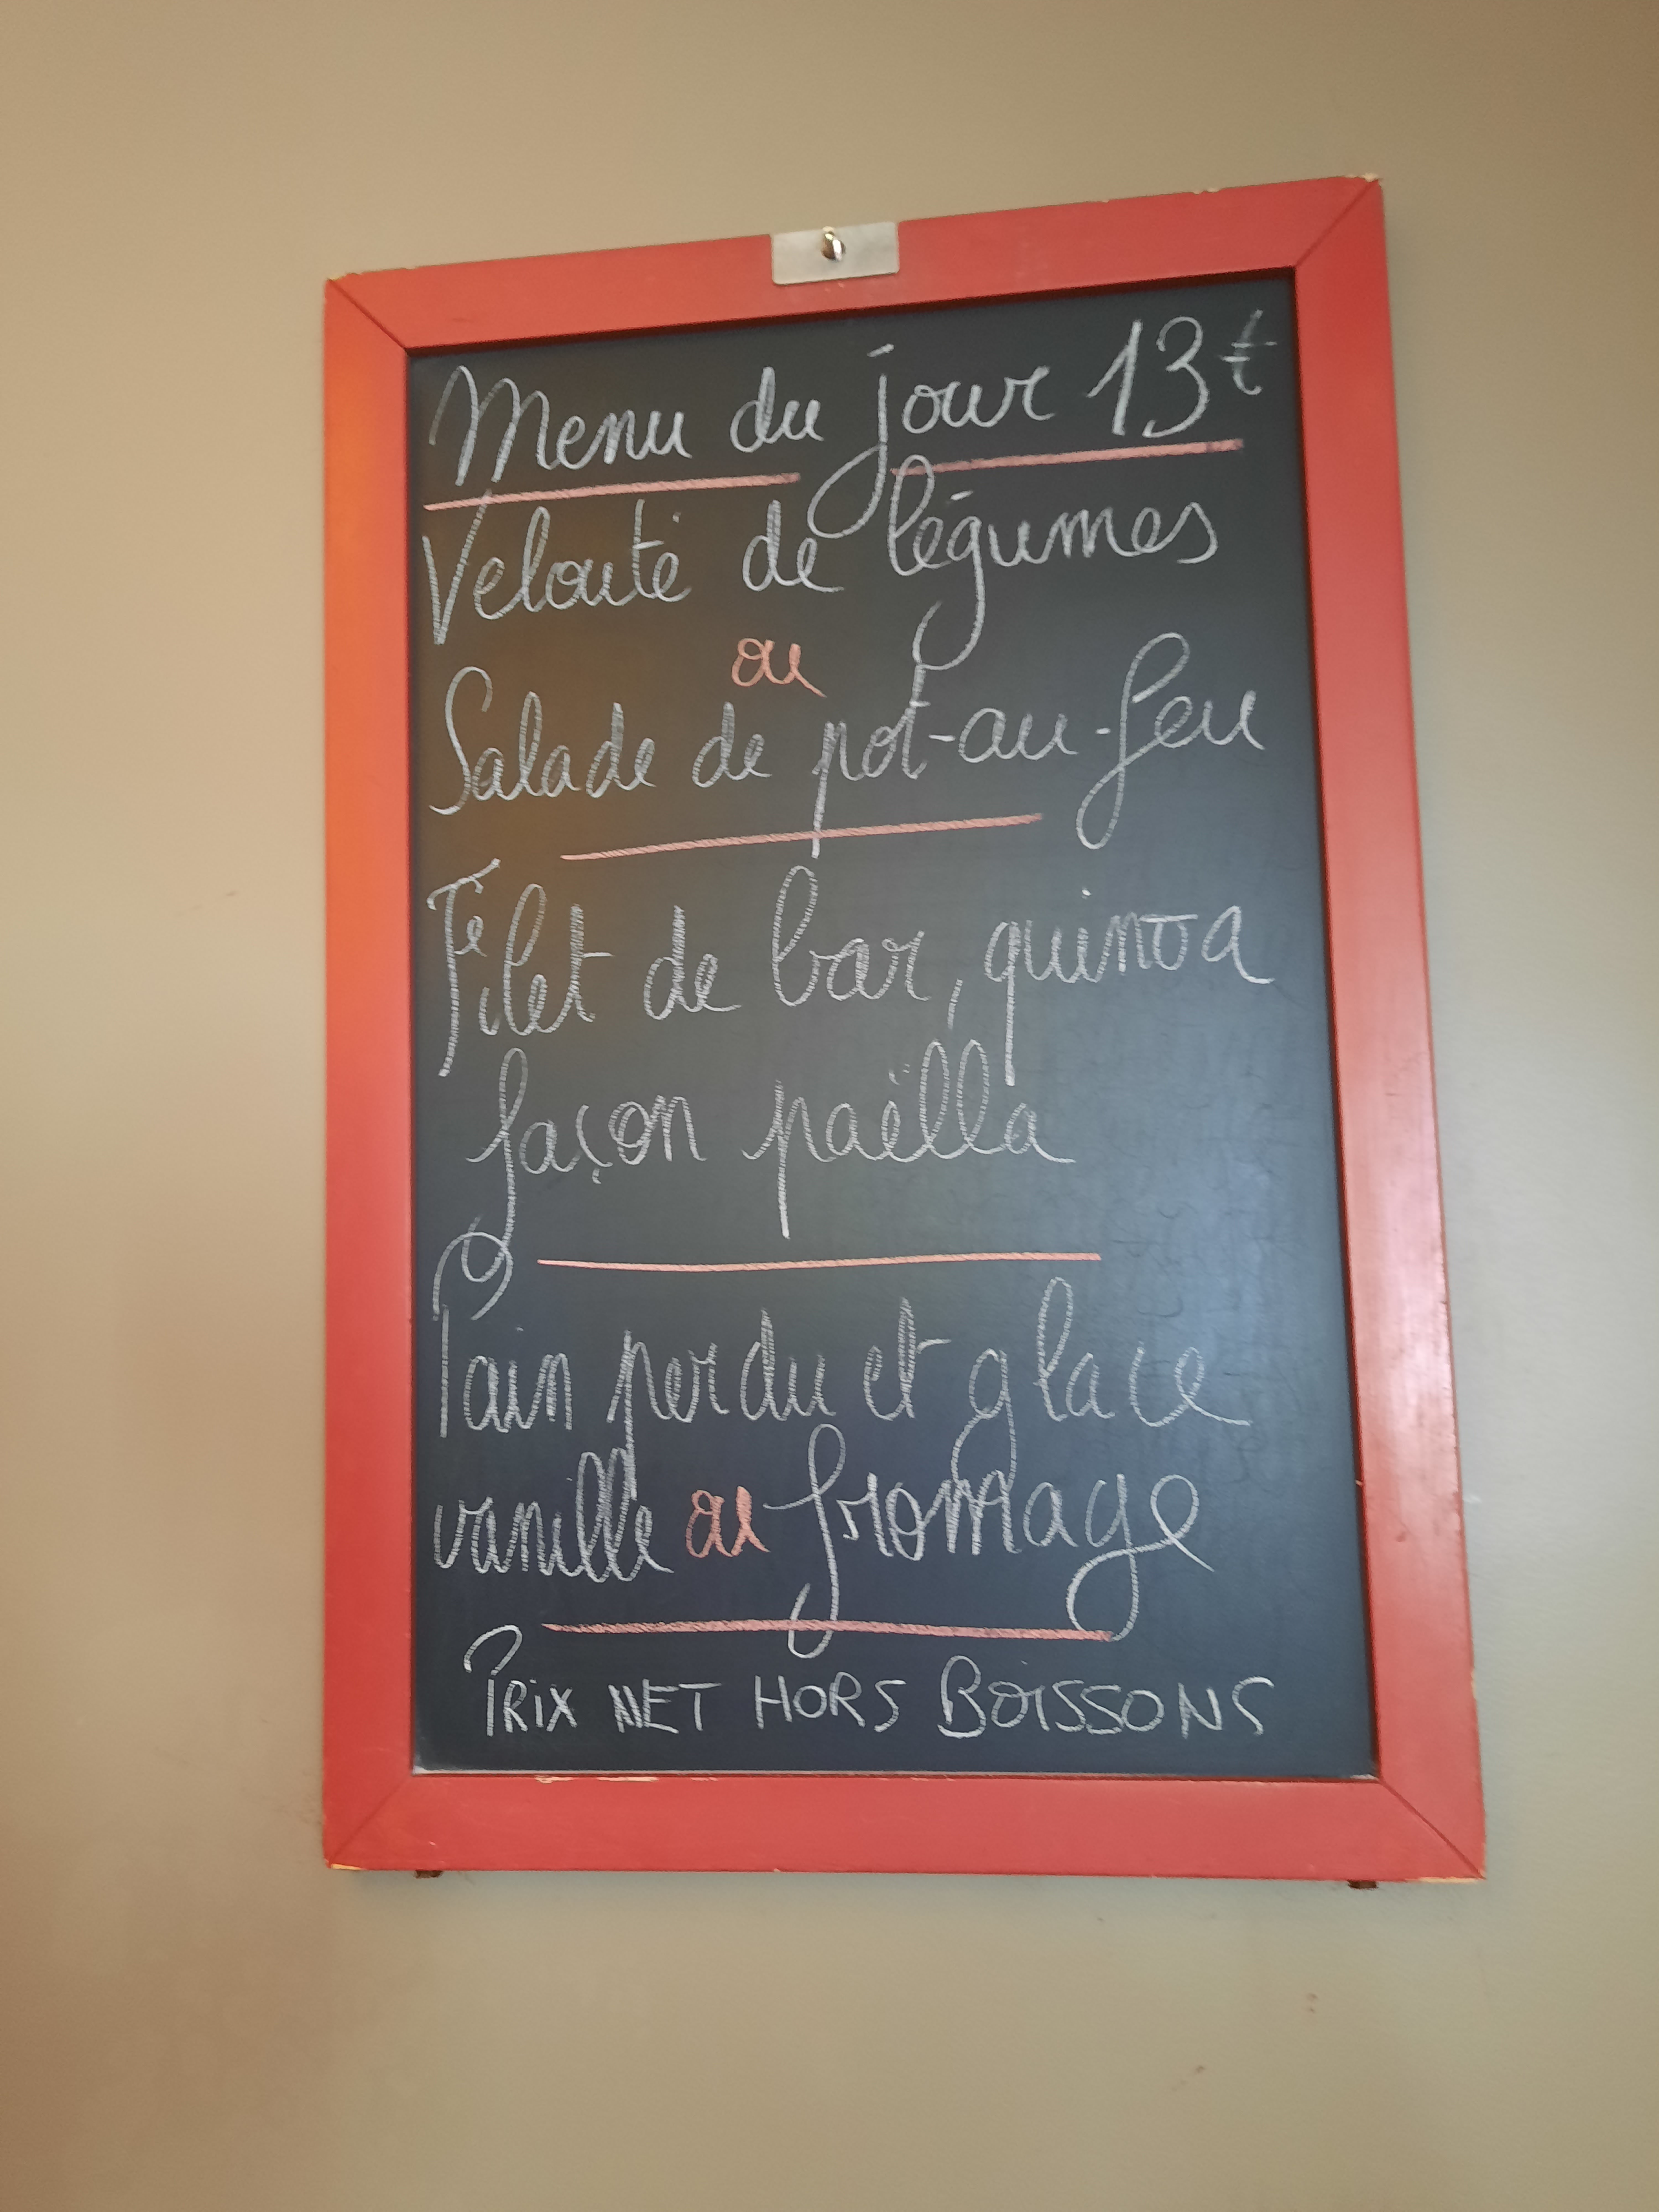 Menu du jour 13€
Velouté de légumes
ou
Salade de pot-au-feu
Filet de bar, quinoa
façon paëlla
Pain perdu et glace
vanille ou fromage
PRIX NET HORS BOISSONS